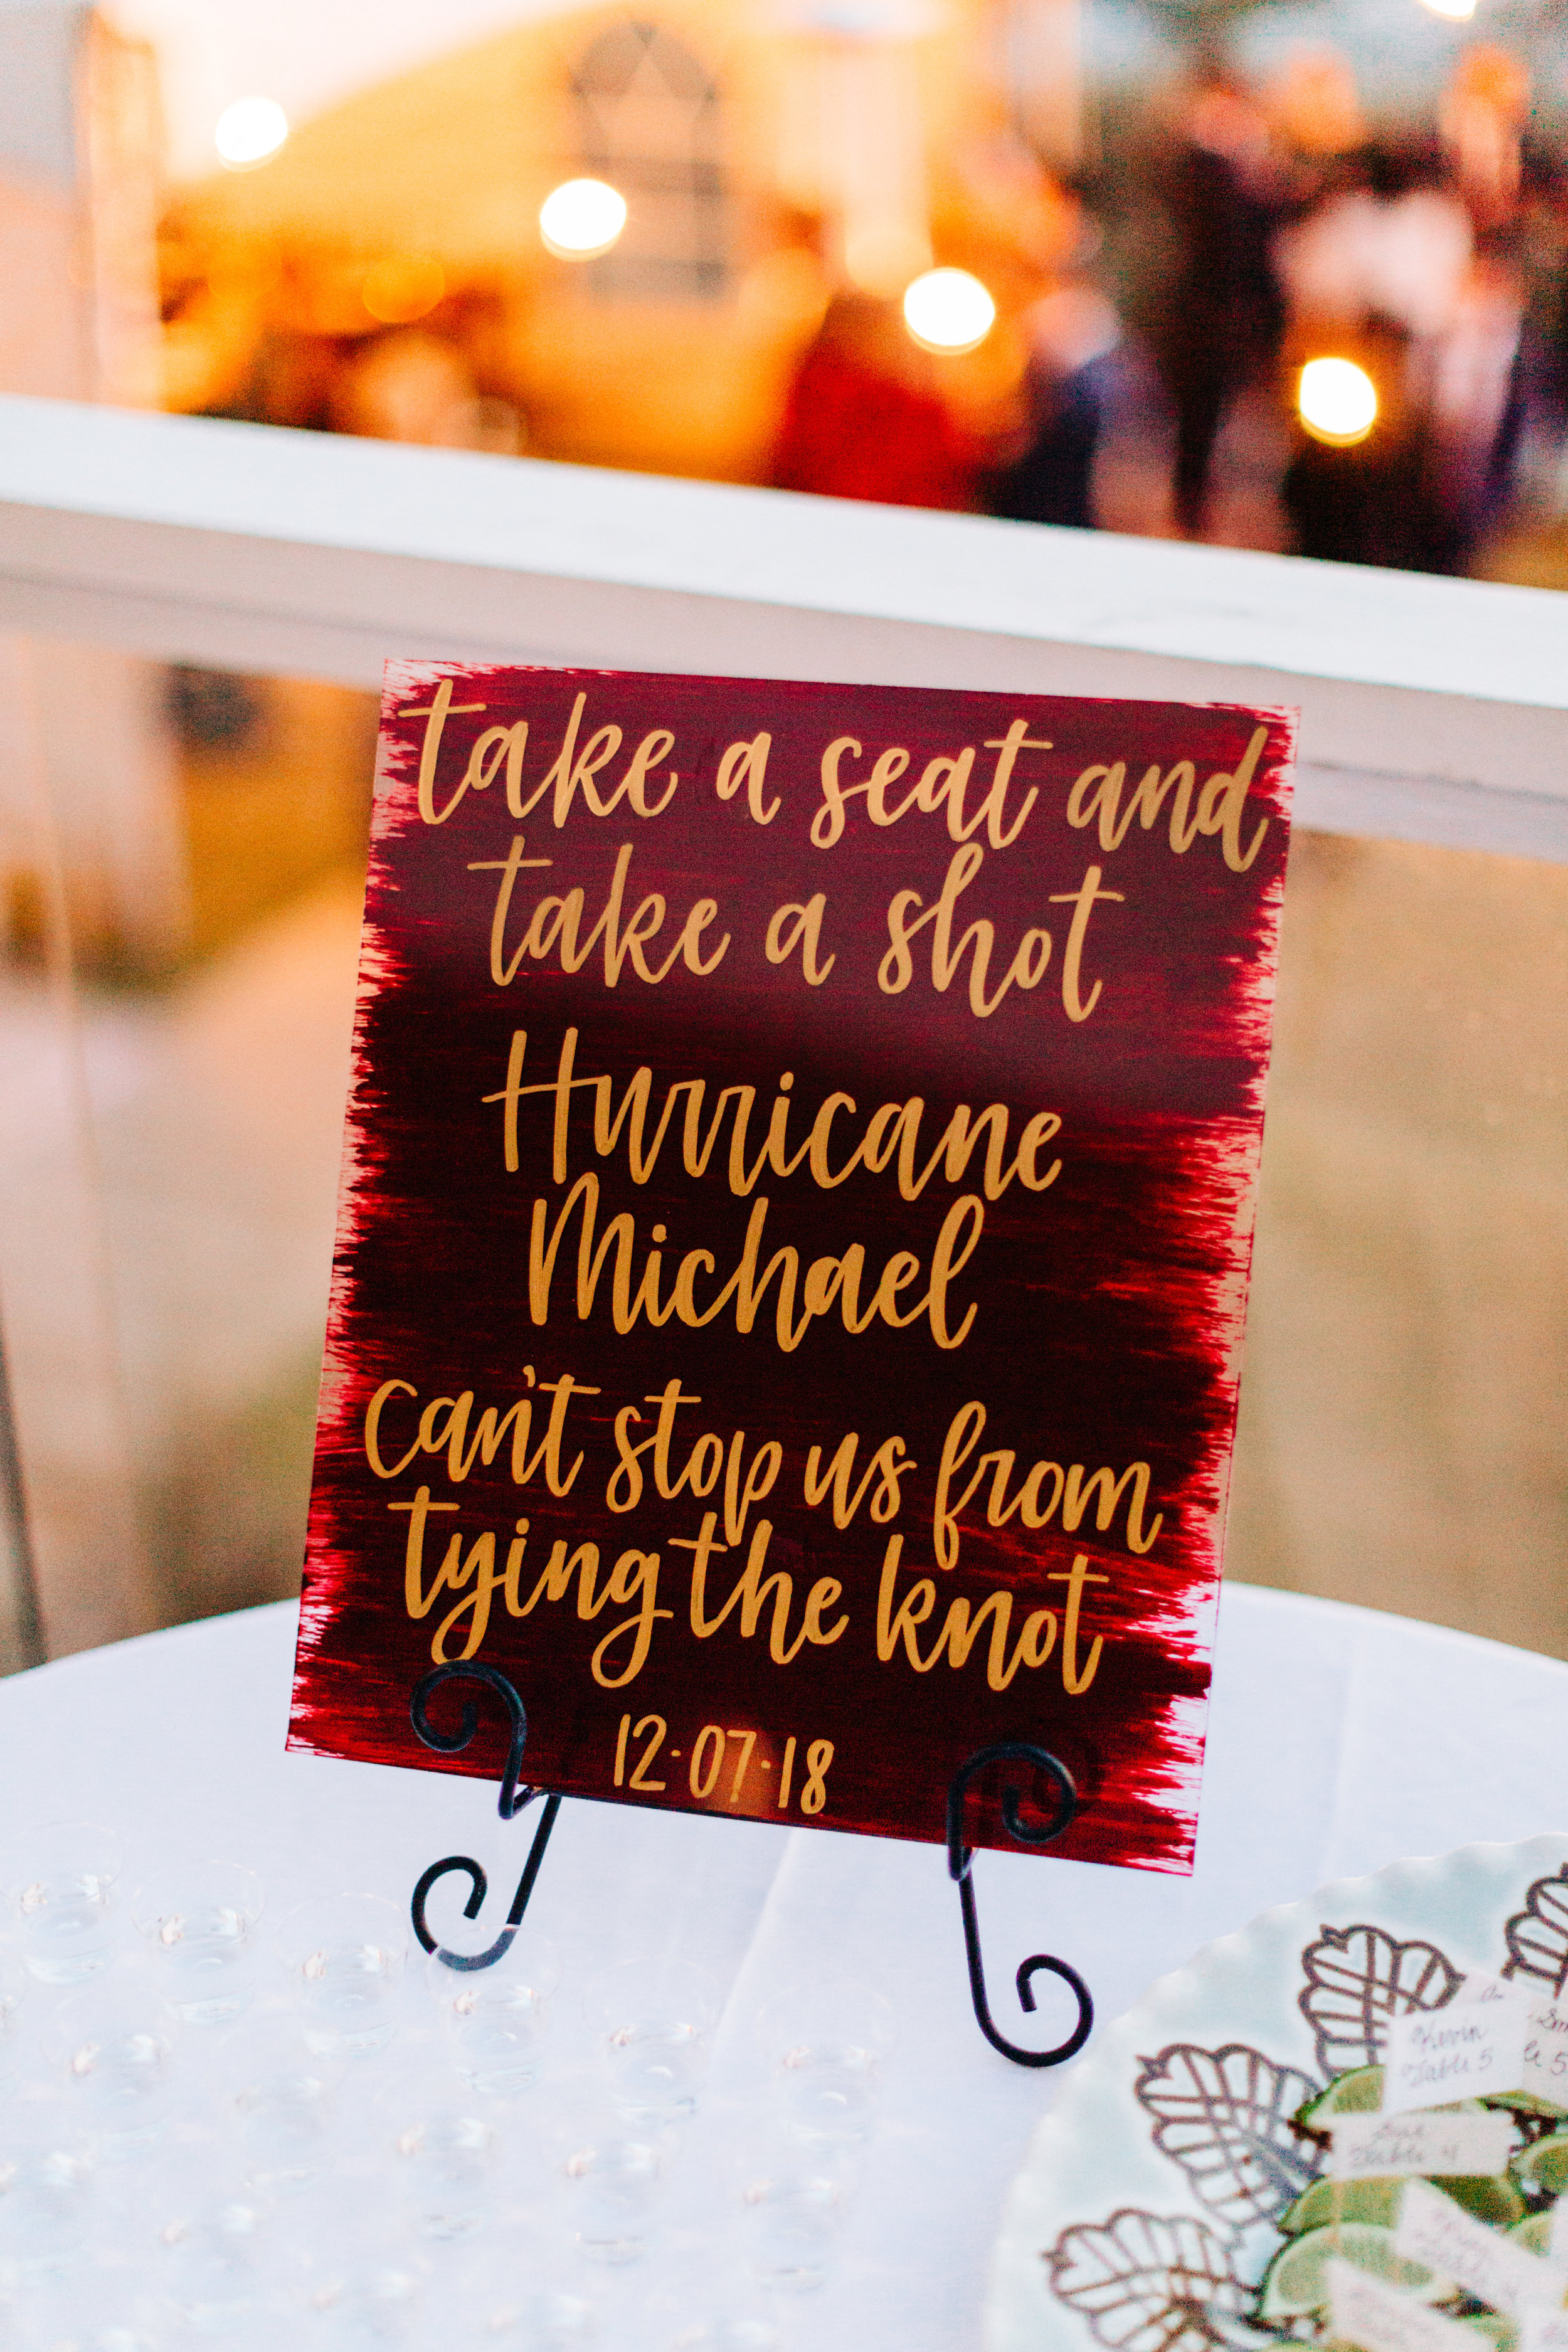 take a seat and
take a shot
Hurricane
Michael
can't stop us from
tying the knot
12·07·18
Kevin
Table 5
Table 4